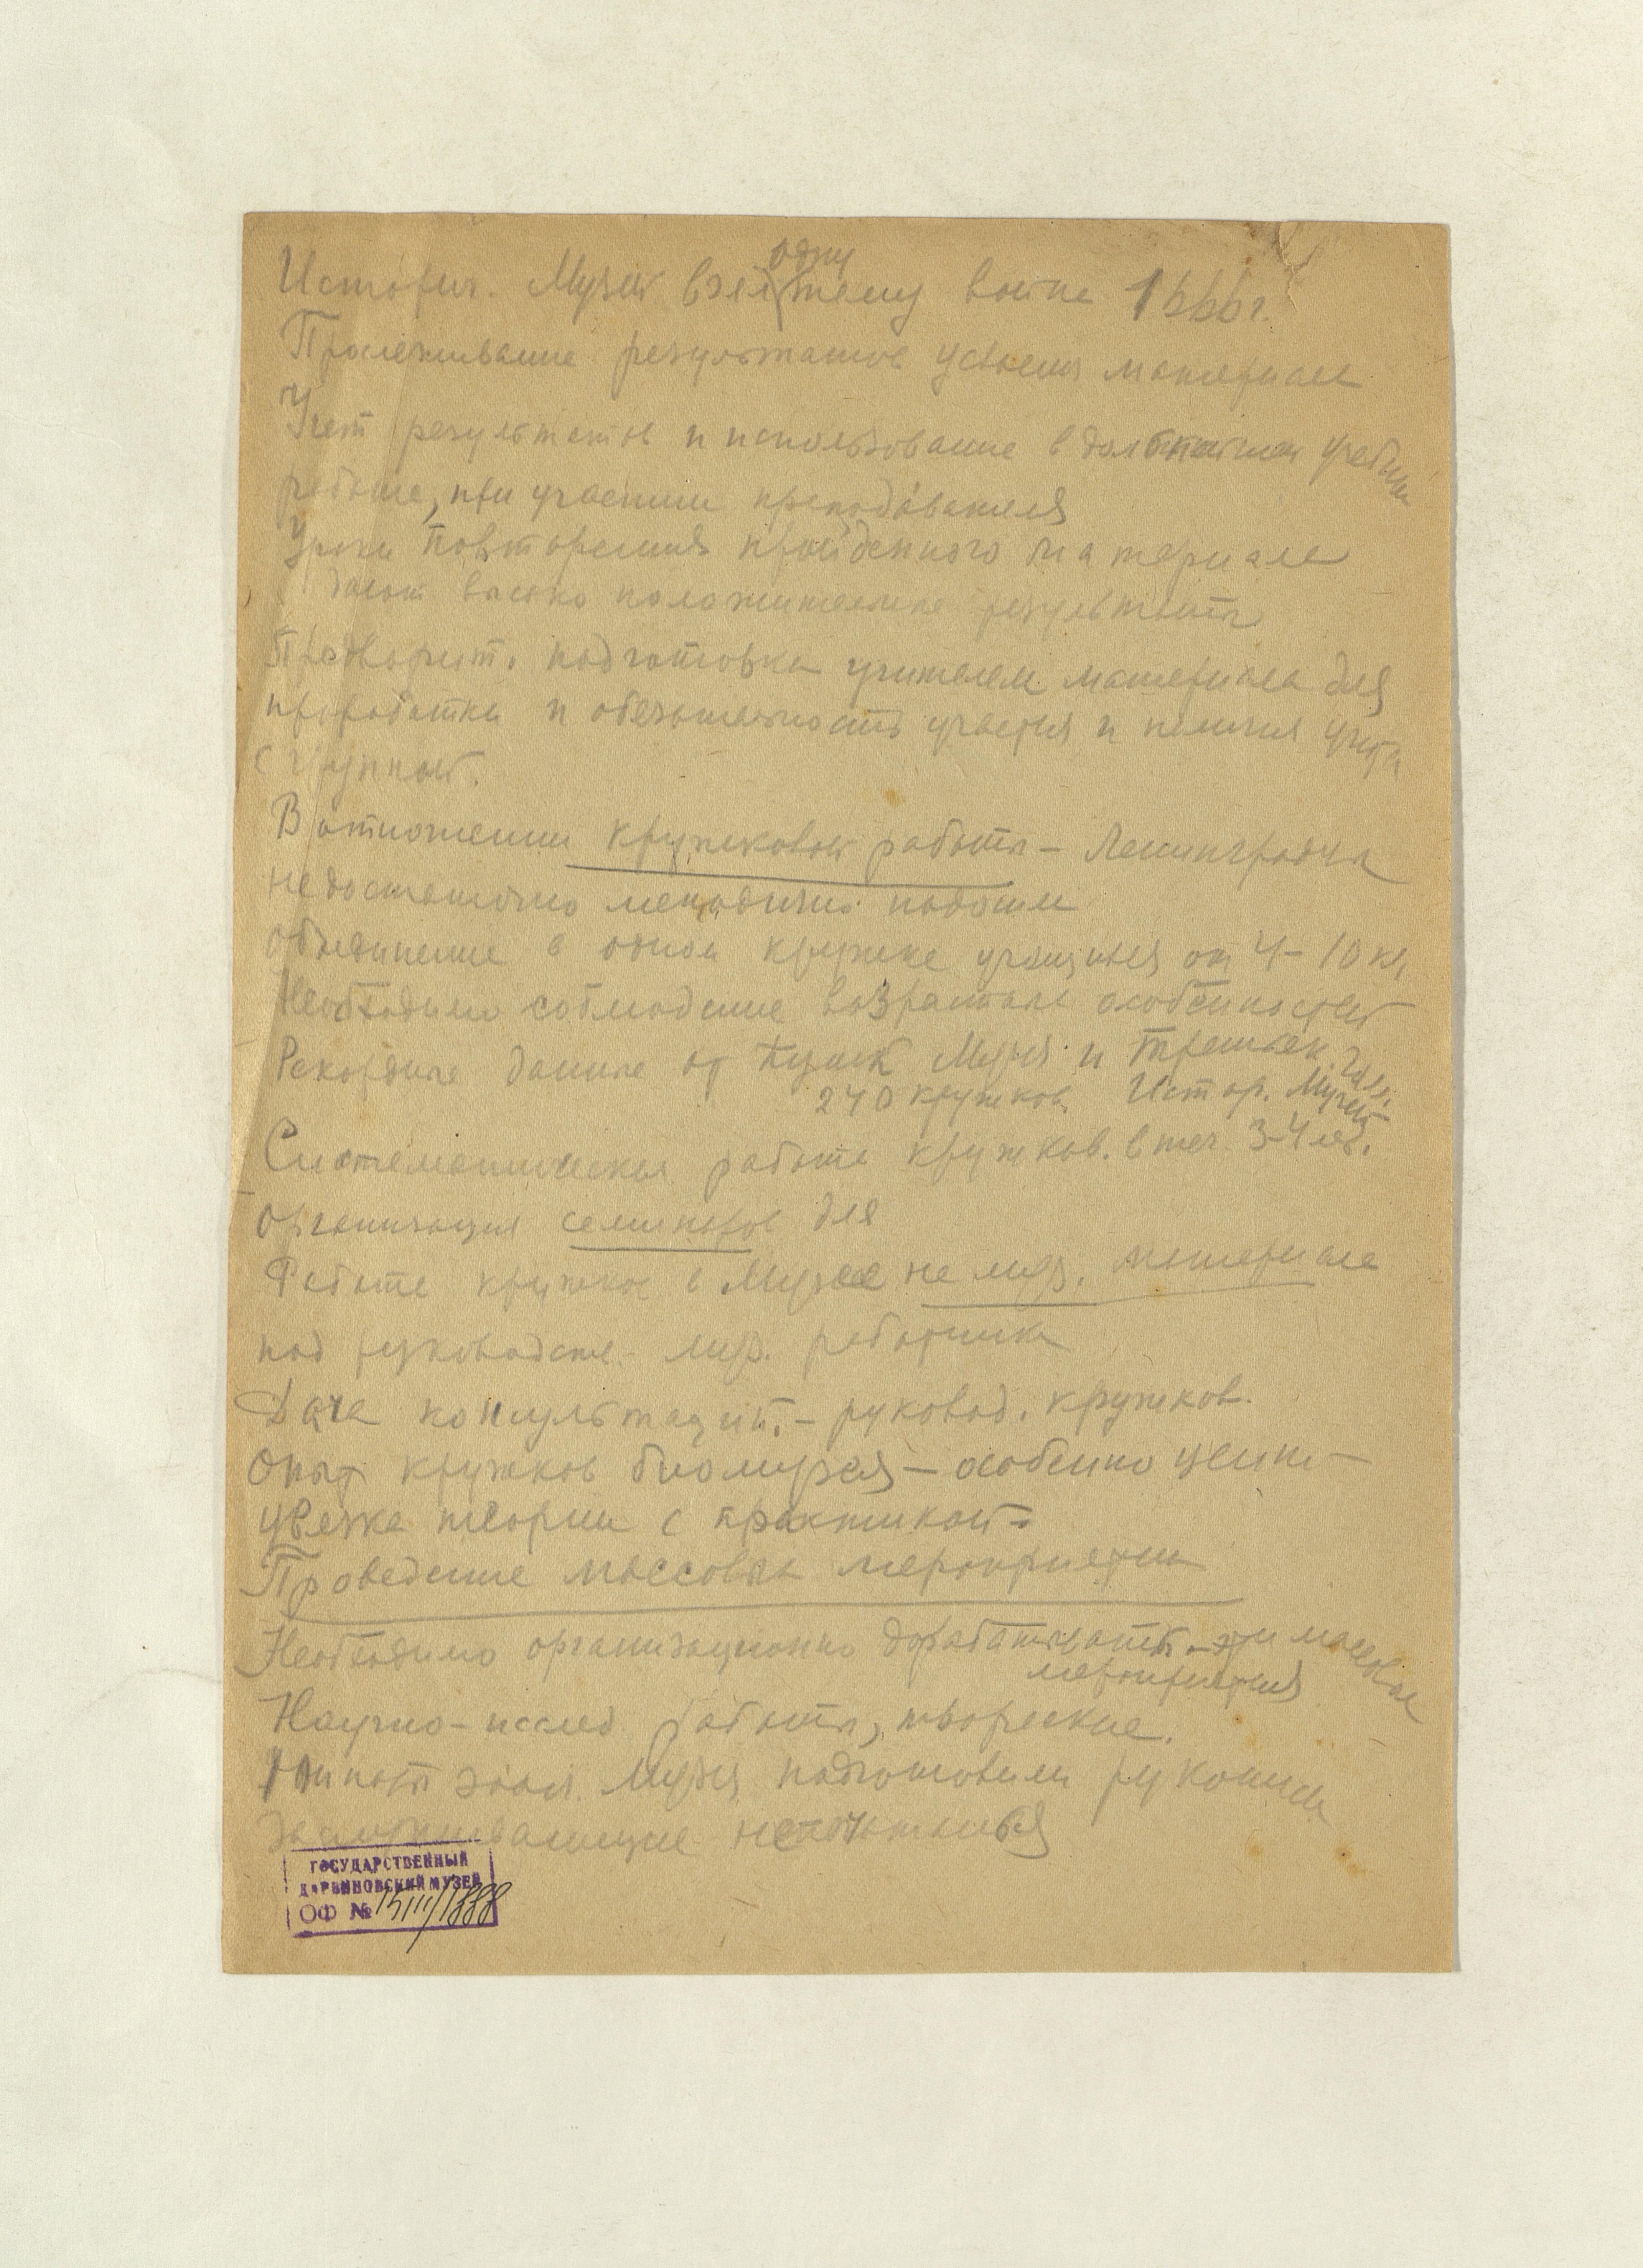 Историч. Музей взял одну тему война 1
Прослеживание результатов усвоения материала
Учет результатов и использование в дальнейшей учебной
работе, при участии преподавателя
Уроки повторения пройденного материала
дают высоко положительные результаты
Предварит. подготовка учителем материала для
проработки и обязательность участия и наличия
с группой.
В отношении кружковой работы – Ленинградцы
недостаточно методично подошли
Объединение в одном кружке учащихся от 4–10 кл.
Необходимо соблюдение возрастных особенностей
Рекордные данные от Музея и Третьяк. Гал.
240 кружков. Истор. Музей
Систематическая работа кружков. в теч. 3–4 лет.
Организация семинаров для
Работа кружков в Музее на муз. материале
под руководств. муз. работника
Дача консультаций. – руковод. кружков.
Опыт кружков биомузея – особенно ценно –
увязка теории с практикой.
Проведение массовых мероприятий
Необходимо организационно дорабатывать эти массовые
мероприятия
Научно-исслед работы, творческие.
Музея подготовили рукописи
заслуживающие
ГОСУДАРСТВЕННЫЙ
ДАРВИНОВСКИЙ МУЗЕЙ
ОФ №